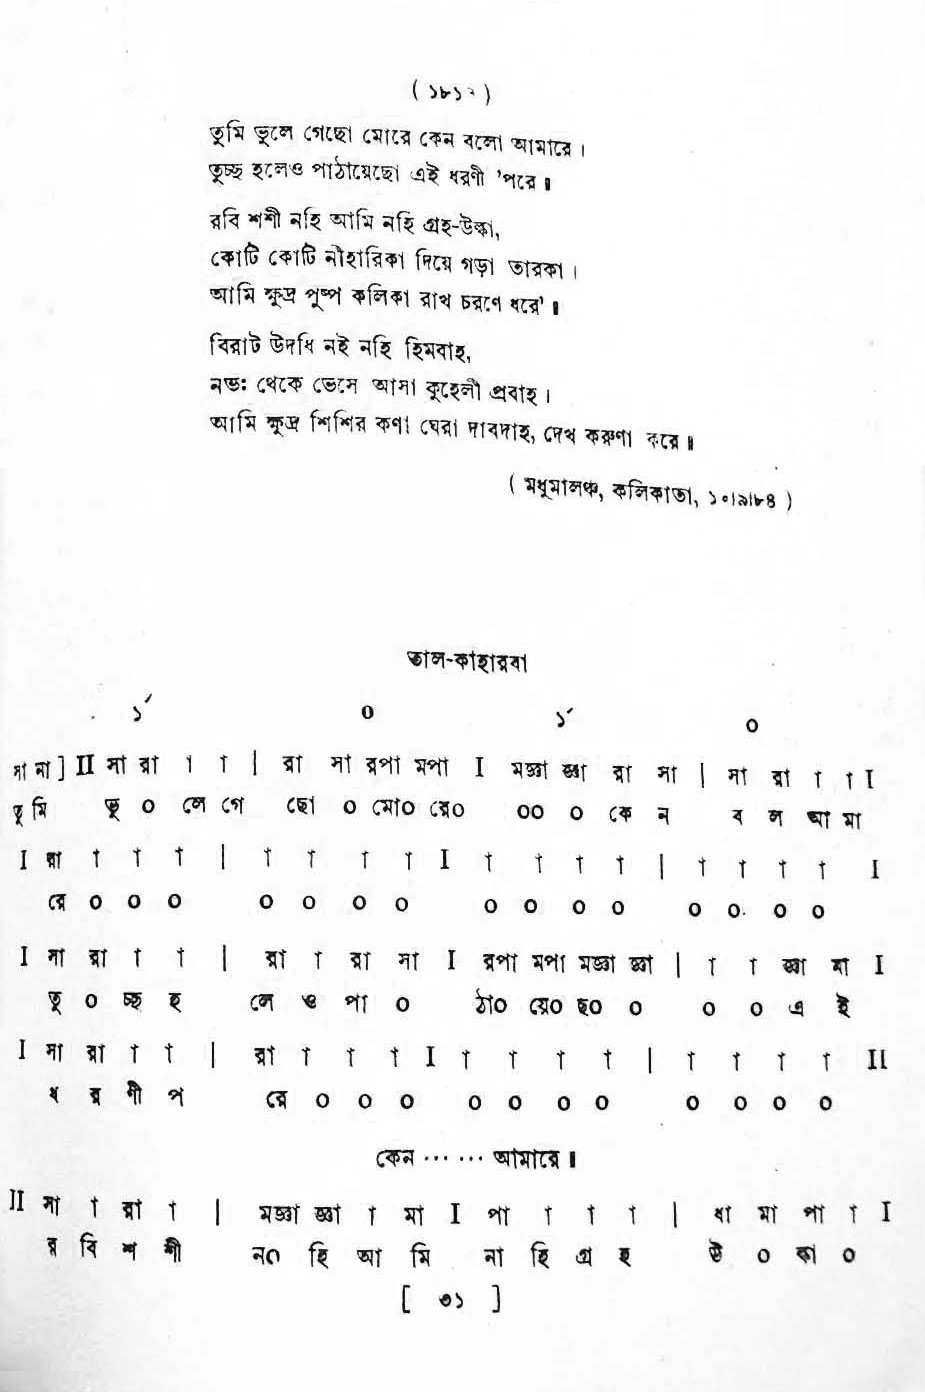 ( ১৮১২ )
তুমি ভুলে গেছো মোরে কেন বলো আমারে ।
তুচ্ছ হলেও পাঠায়েছো এই ধরণী 'পরে ॥
রবি শশী নহি আমি নহি গ্রহ-উল্কা,
কোটি কোটি নীহারিকা দিয়ে গড়া তারকা ।
আমি ক্ষুদ্র পুষ্প কলিকা রাখ চরণে ধরে' ॥
বিরাট উদধি নই নহি হিমবাহ,
নভঃ থেকে ভেসে আসা কুহেলী প্রবাহ ।
আমি ক্ষুদ্র শিশির কণা ঘেরা দাবদাহ, দেখ করুণা করে ॥
( মধুমালঞ্চ, কলিকাতা, ১০৷৯৷৮৪ )
তাল-কাহারবা
১´ ০ ১´ ০
সা না ] II সা রা া া | রা সা রপা মপা I মজ্ঞা জ্ঞা রা সা | সা রা া া I
তু মি ভু ০ লে গে ছো ০ মো০ রে০ ০০ ০ কে ন ব ল আ মা
I রা া া া | া া া া I া া া া | া া া া I
রে ০ ০ ০ ০ ০ ০ ০ ০ ০ ০ ০ ০ ০ ০ ০
I সা রা া া | রা া রা সা I রপা মপা মজ্ঞা জ্ঞা | া া জ্ঞা মা I
তু ০ চ্ছ হ লে ও পা ০ ঠা০ য়ে০ ছ০ ০ ০ ০ এ ই
I সা রা া া | রা া া া I া া া া | া া া া II
ধ র ণী প রে ০ ০ ০ ০ ০ ০ ০ ০ ০ ০ ০
কেন ··· ··· আমারে ॥
II সা া রা া | মজ্ঞা জ্ঞা া মা I পা া া া | ধা মা পা া I
র বি শ শী ন০ হি আ মি না হি গ্র হ উ ০ কা ০
[ ৩১ ]